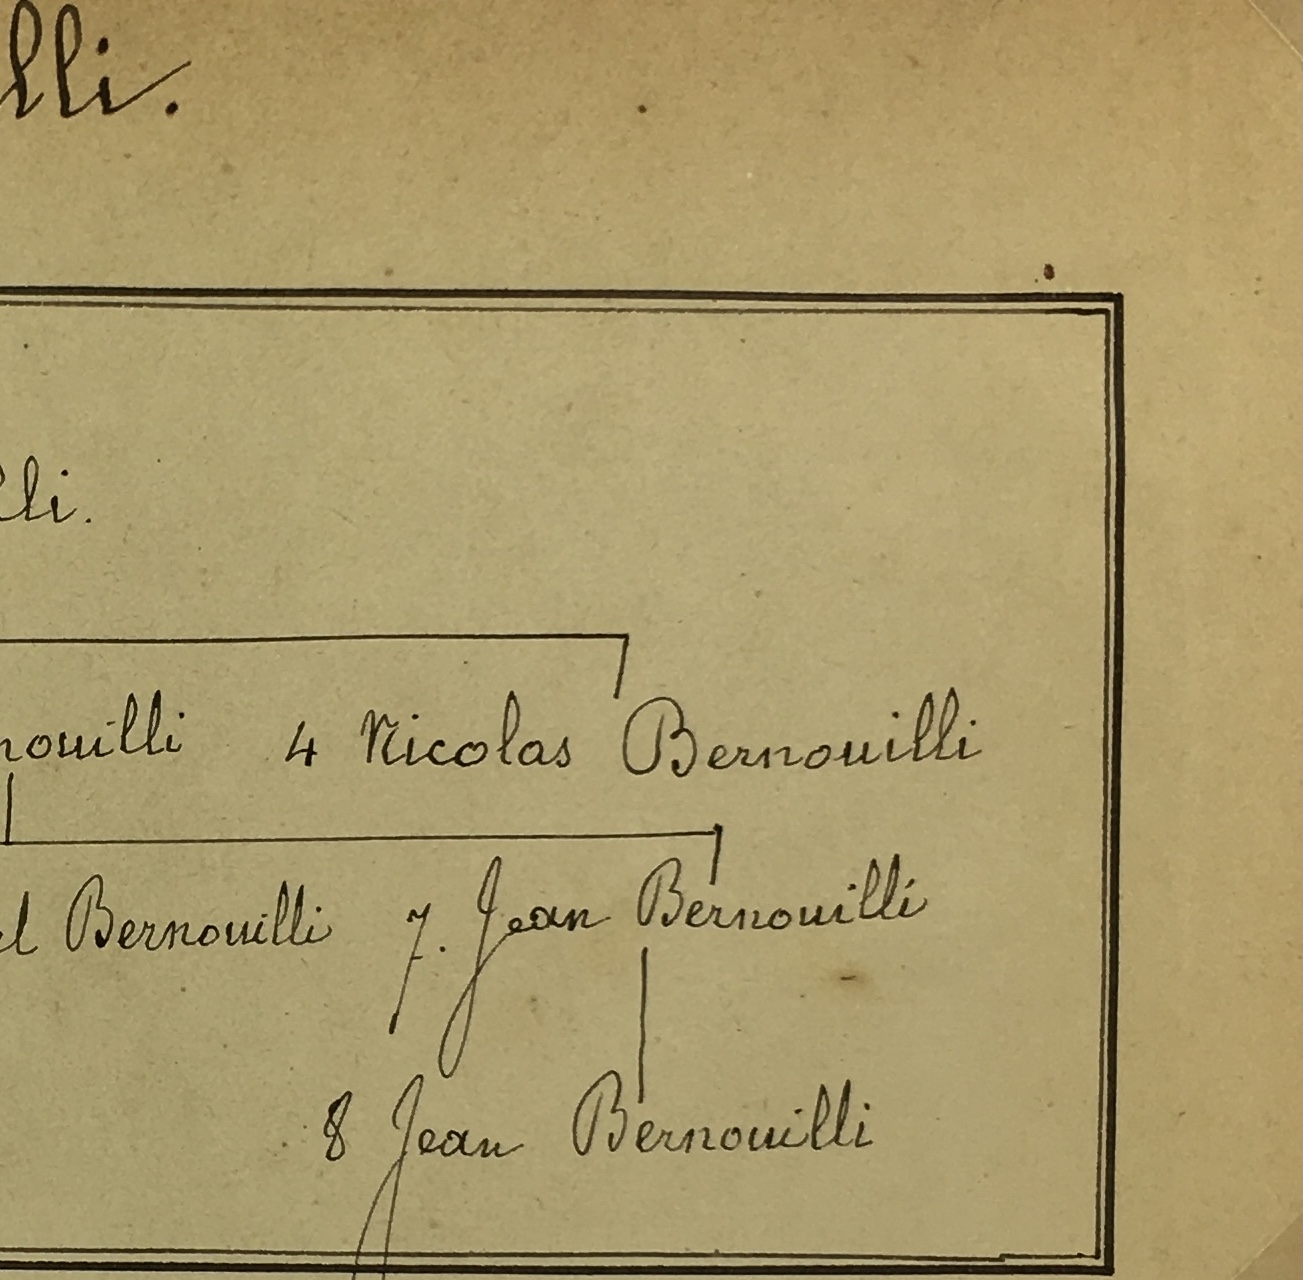 lli.
lli.
nouilli 4 Nicolas Bernouilli
el Bernouilli 7. Jean Bernouilli
8 Jean Bernouilli